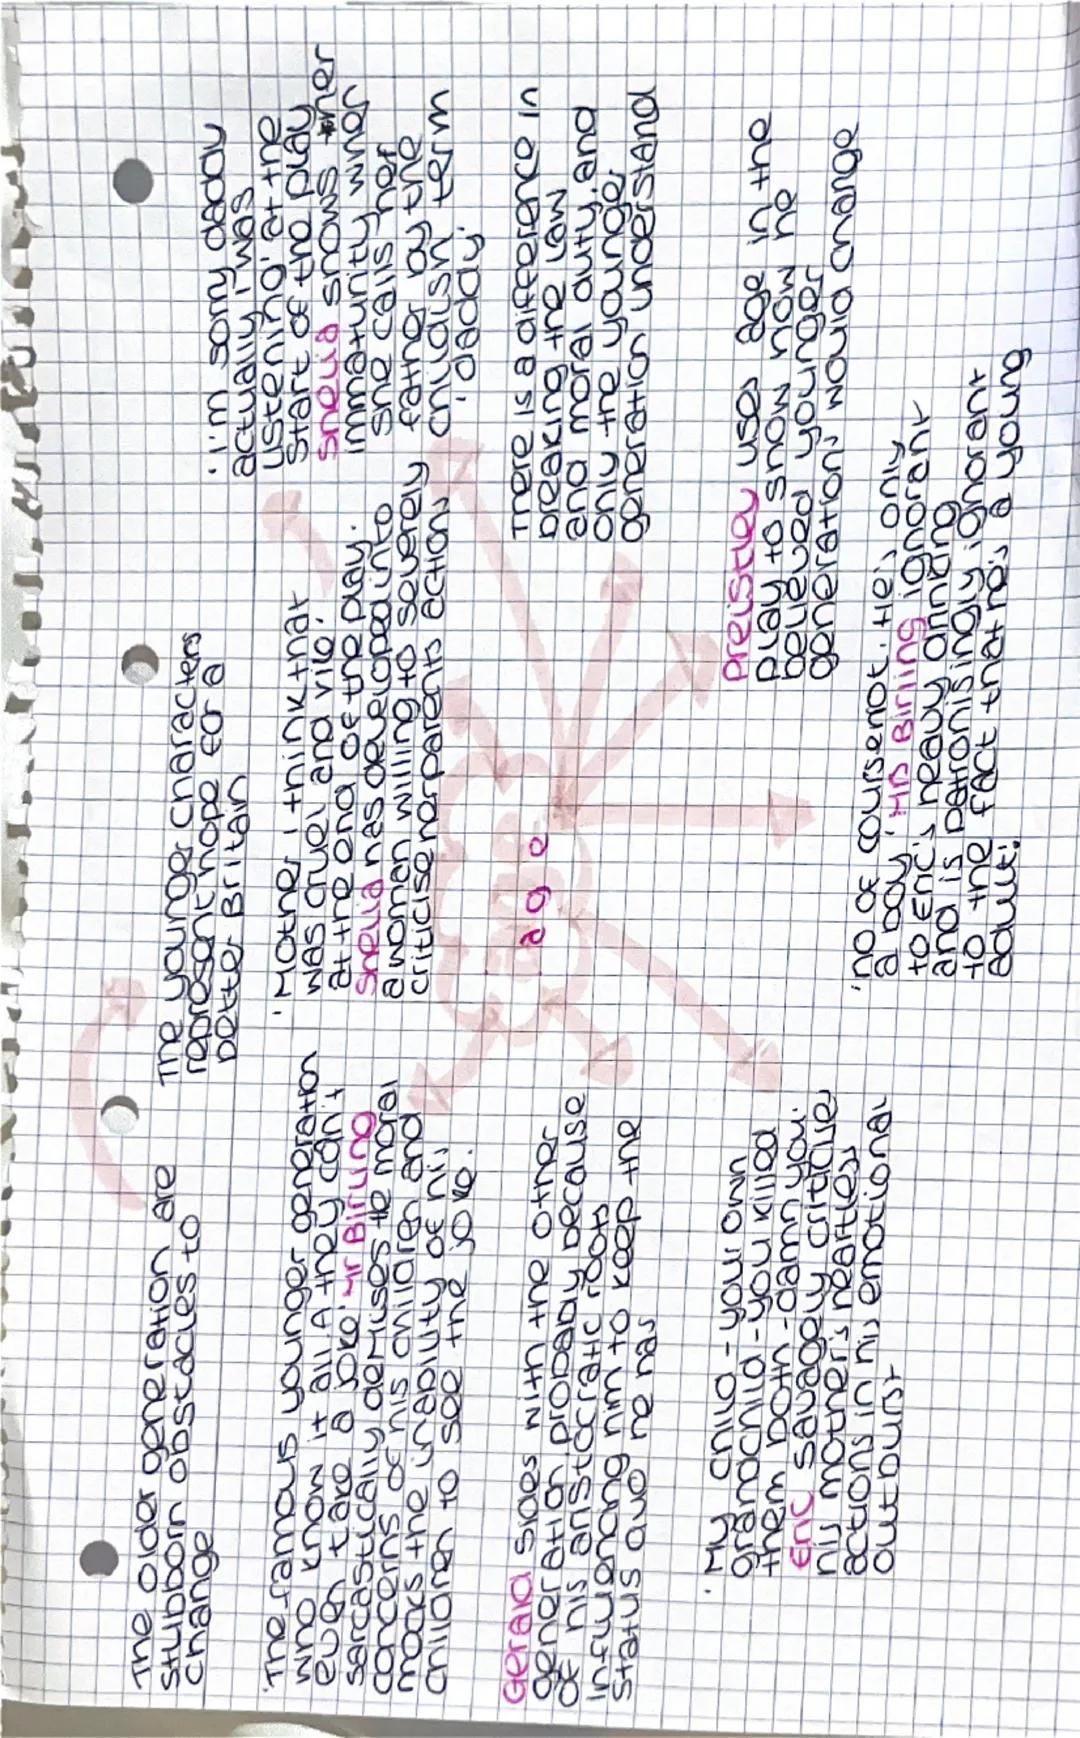 The older generation are
stubborn obstacles to
change
The younger characters
represent hope for a
better Britain
'I'm sorry daddy
actually I was
listening' at the
start of the play
Sheila shows her
immaturity when
she calls her
father by the
childish term
'daddy'
'The famous younger generation
who know it all. And they can't
even take a joke' Mr Birling
sarcastically demises the moral
concerns of his children and
mocks the inability of his
children to see the joke.
'Mother, I think that
was cruel and vile'
at the end of the play.
Sheila has developed into
a woman willing to severely
criticise her parents actions
age
Gerald sides with the other
generation probably because
of his aristocratic roots
influencing him to keep the
status quo he has
There is a difference in
breaking the law
and moral duty, and
only the younger
generation understand
Preistley uses age in the
play to show how he
believed younger
generations would change
'My child - your own
grandchild - you killed
them both - damn you'
Eric savagely critiques
his mother's heartless
actions in his emotional
outburst
'no of course not. He's only
a boy' Mrs Birling ignorant
to Eric's heavy drinking
and is patronisingly ignorant
to the fact that he's a young
adult!